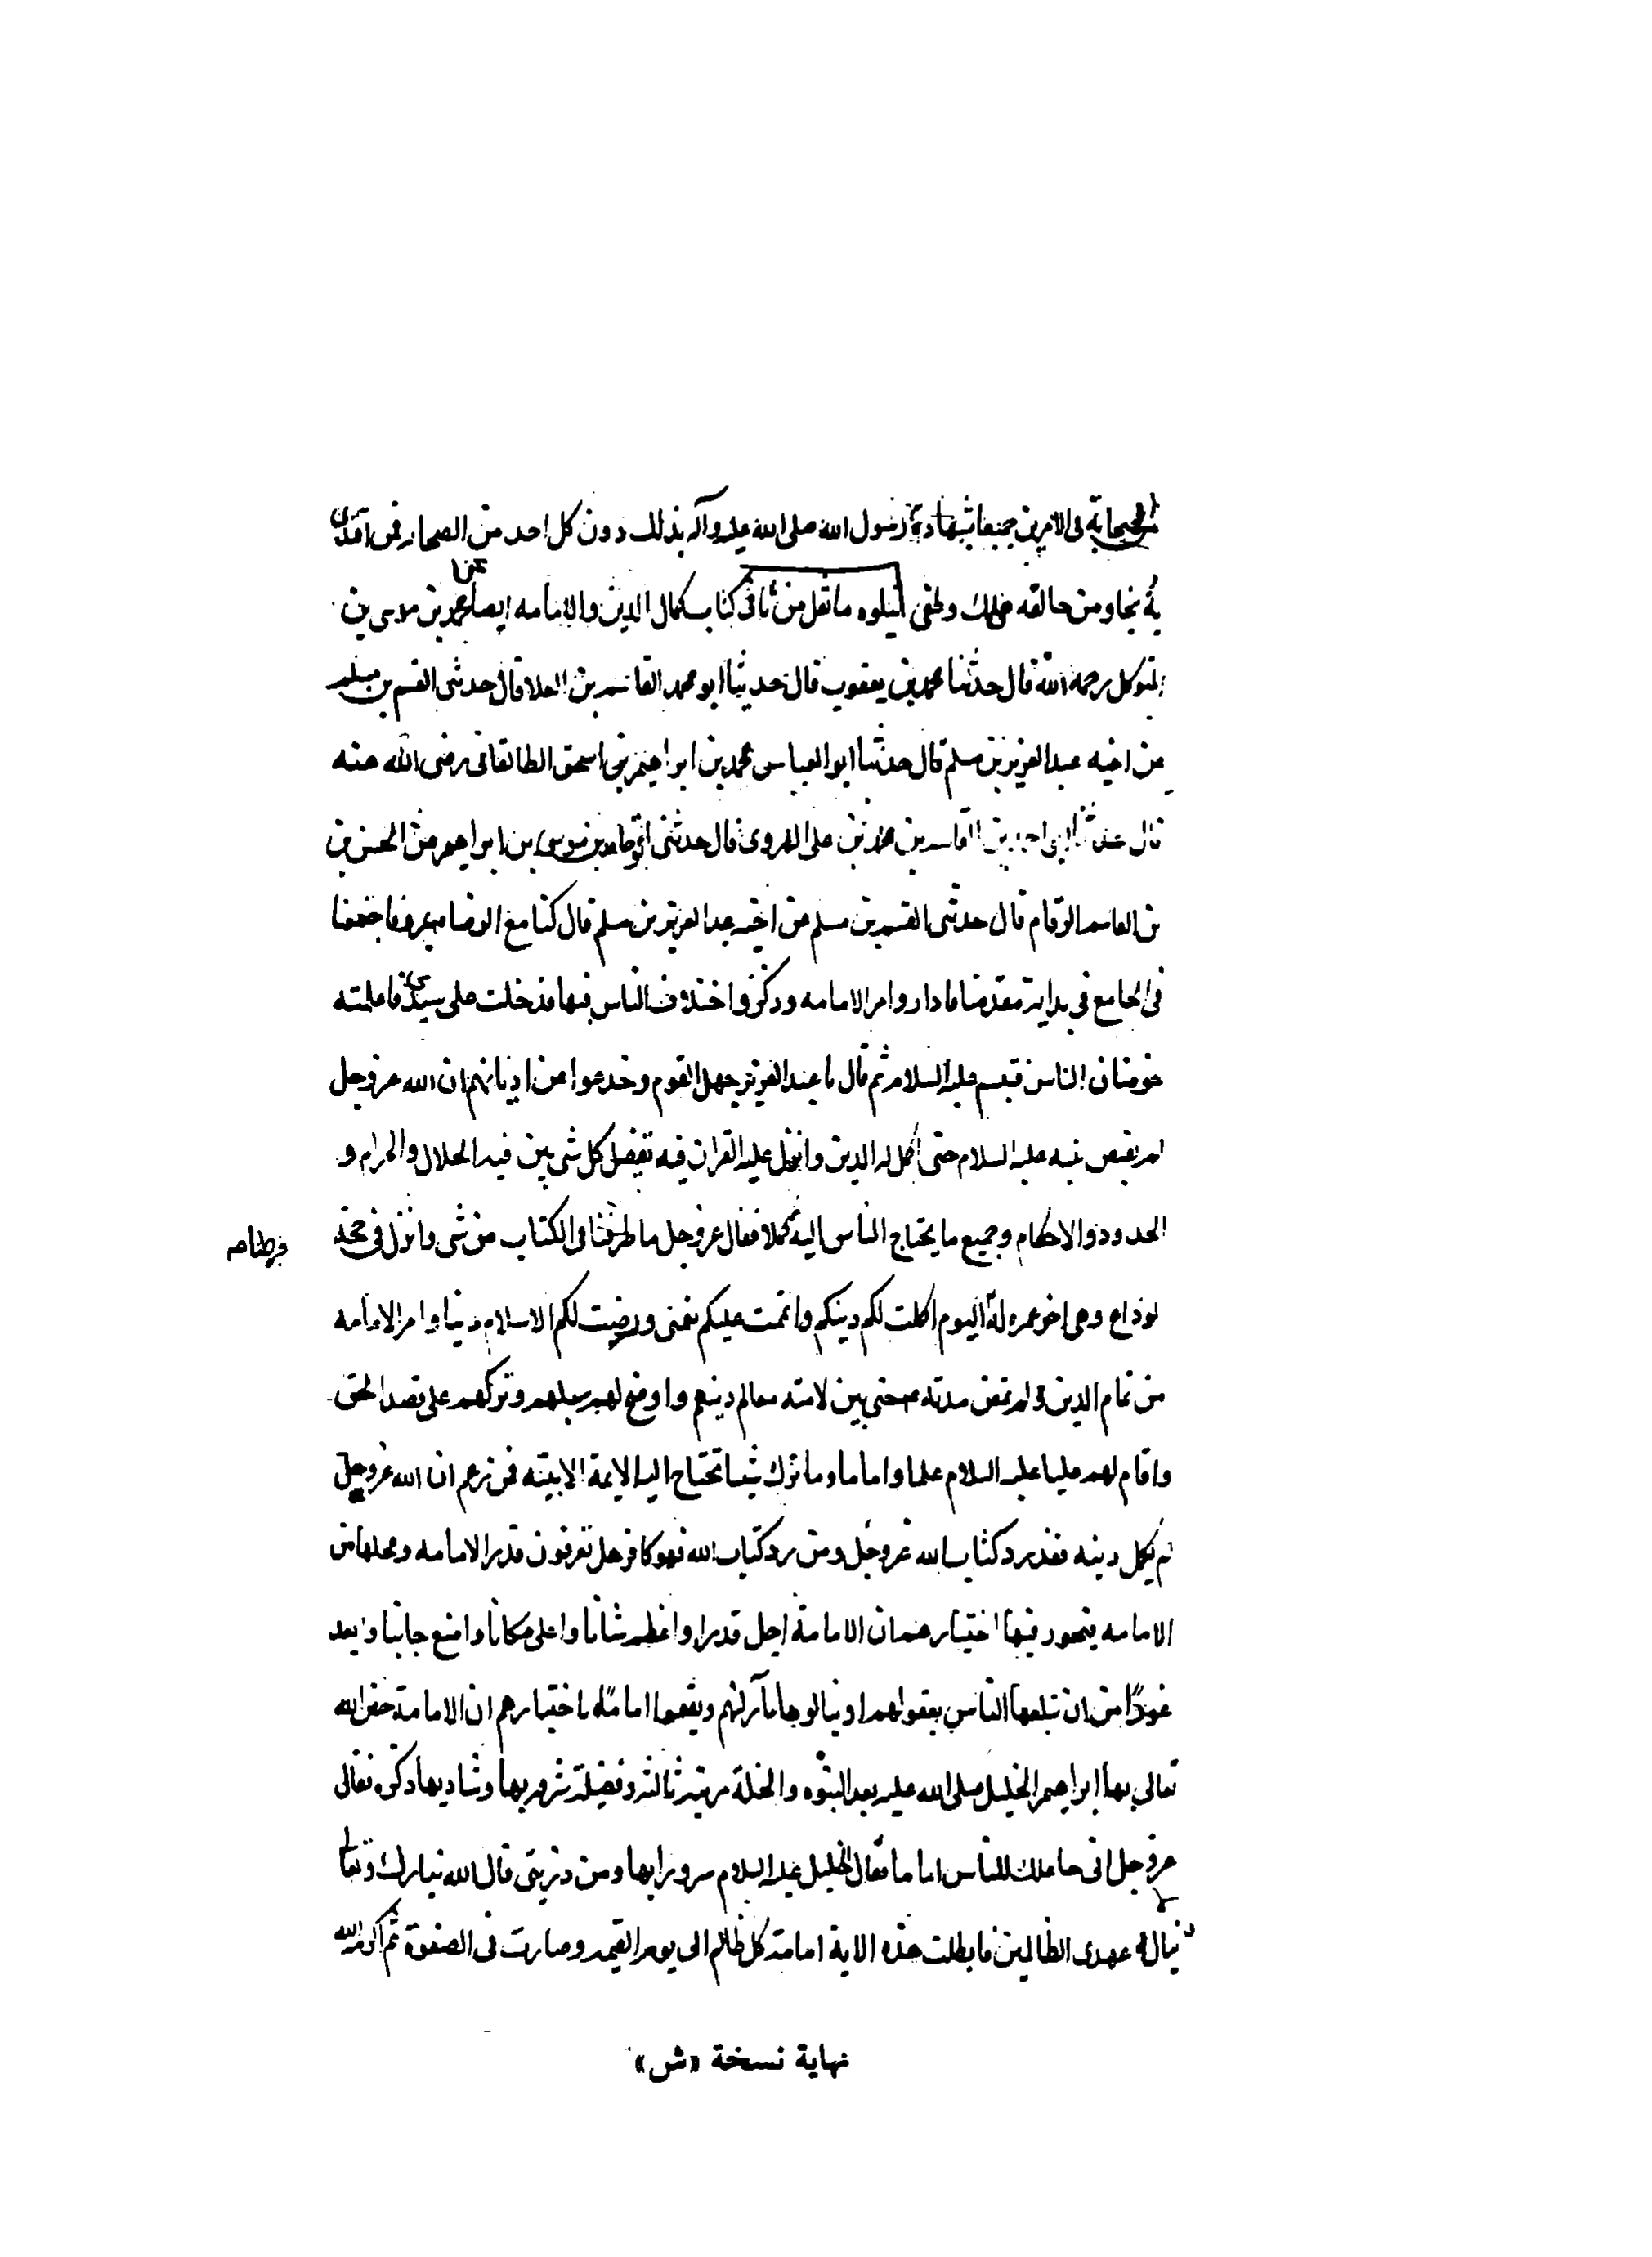 الصحابة في الامرين جميعا بشهادة رسول الله صلى الله عليه وآله بذلك دون كل احد من الصحابه فمن اقتدى
به نجا ومن خالفه هلك ما نقل من كتاب كمال الدين والامامه ايضا عن محمد بن موسى بن
المتوكل رحمه الله قال حدثنا محمد بن يعقوب قال حدثنا ابو محمد القاسم بن العلا قال حدثنى القسم بن مسلم
عن اخيه عبد العزيز بن مسلم قال حدثنا ابو العباس محمد بن ابراهيم بن اسحق الطالقانى رضى الله عنه
قال القاسم بن محمد بن على الهروى قال حدثنى ابو حامد بن موسى بن ابراهيم عن الحسن بن
بن القاسم الرقام قال حدثنى القسم بن مسلم عن اخيه عبد العزيز بن مسلم قال كنا مع الرضا بمرو فاجتمعنا
فى الجامع فى بداية مقدمنا فاداروا امر الامامه وذكروا اختلاف الناس فيها فدخلت على سيدى فاعلمته
خوضان الناس فتبسم عليه السلام ثم قال يا عبد العزيز جهل القوم وخدعوا عن اديانهم ان الله عز وجل
لم يقبض نبيه عليه السلام حتى اكمل له الدين وانزل عليه القران فيه تفصيل كل شى بين فيه الحلال والحرام و
الحدود والاحكام وجميع ما يحتاج الناس اليه كملا فقال عز وجل ما فرطنا فى الكتاب من شى وانزل فى حجة
فرطنا صه
الوداع وهى اخر عمره اليوم اكملت لكم دينكم واتممت عليكم نعمتى ورضيت لكم الاسلام دينا وامر الامامه
من تمام الدين ولم تمض مدته حتى بين لامته معالم دينهم واوضح لهم سبيلهم وتركهم على قصد الحق
واقام لهم عليا عليه السلام علما واماما وما ترك شيئا تحتاج اليه الامة الا بينه فمن زعم ان الله عز وجل
لم يكمل دينه فقد رد كتاب الله عز وجل ومن رد كتاب الله فهو كافر هل تعرفون قدر الامامه ومحلها من
الامامه فيجوز فيها اختيارهم ان الامامة اجل قدرا واعظم شانا واعلى مكانا وامنع جانبا وابعد
غورا من ان تبلغها الناس بعقولهم او ينالوها بآرائهم ويقيموا اماما باختيارهم ان الامامة خص الله
تعالى بها ابراهيم الخليل صلى الله عليه بعد النبوه والخلة مرتبة ثالثة وفضيلة شرفه بها وشاد بها ذكره فقال
عز وجل انى جاعلك للناس اماما فقال الخليل عليه السلام سرورا بها ومن ذريتى قال الله تبارك وتعالى
لا ينال عهدى الظالمين فابطلت هذه الاية امامة كل ظالم الى يوم القيمه وصارت فى الصفوة ثم اكرمه الله
نهاية نسخة «ش»